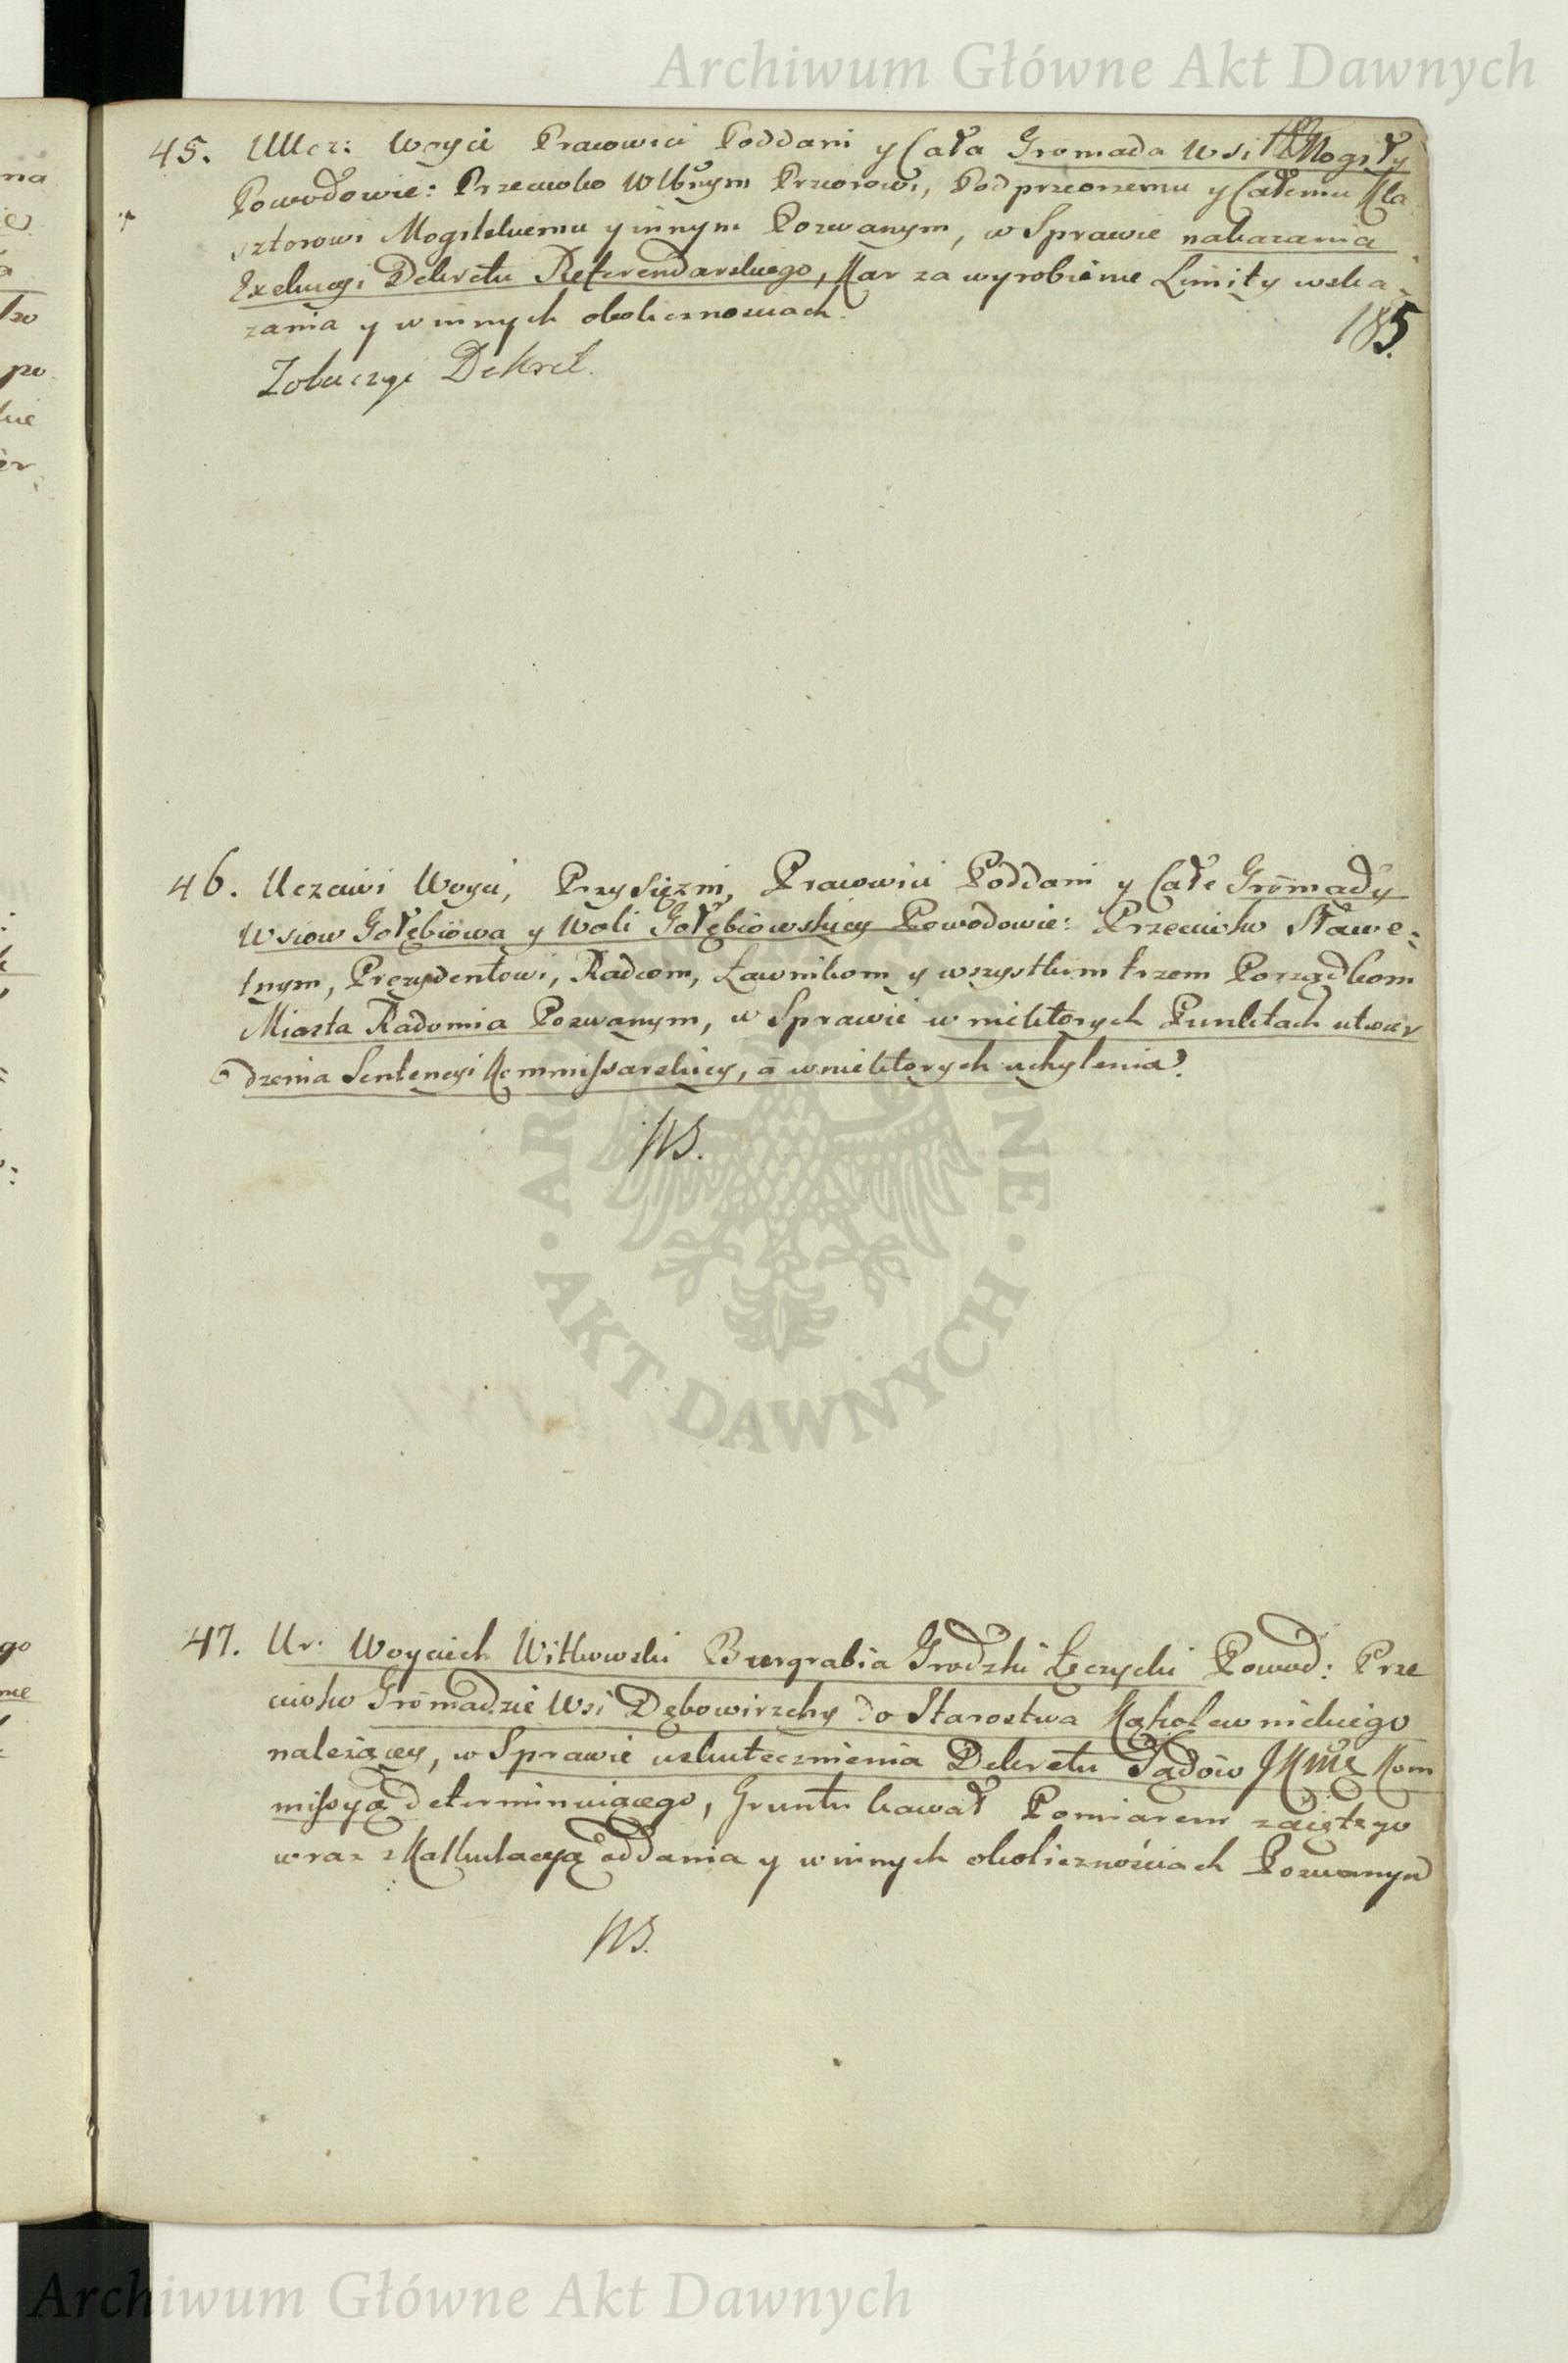 Archiwum Główne Akt Dawnych
45. UUcz: Woyci Pracowici Poddani y Cała Gromada Wsi Mogiły
Powodowie: Przeciwko WWbnym Przeorowi, Podprzeorzemu y Całemu Kla
sztorowi Mogilskiemu y innym Pozwanym, w Sprawie nakazania
Exekucyi Dekretu Referendarskiego, Kar za wyrobienie Limity wska-
zania y w innych okolicznosciach.
185.
Zobaczyć Dekret.
46. Uczciwi Woyci, Przysięzni, Pracowici Poddani y Całe Gromady
Wsiow Gołębiowa y Woli Gołębiowskiey Powodowie: Przeciwko Sławe=
tnym, Prezydentowi, Radcom, Ławnikom y wszystkim trzem Porządkom
Miasta Radomia Pozwanym, w Sprawie w niektorych Punktach utwier
dzenia Sentencyi Kommissarskiey, a w niektorych uchylenia.
NS.
47. Ur: Woyciech Witkowski Burgrabia Grodzki Łęczycki Powod: Prze
ciwko Gromadzie Wsi Dębowirzchy do Starostwa Kąkolewnickiego
nalezącey, w Sprawie uskutecznienia Dekretu Sądów JKMci Kom
missyą determinuiącego, Gruntu kawał Pomiarem zaiętego
wraz z Kalkulacyą oddania y w innych okolicznościach Pozwanym
NS.
ARCHIWUM GŁÓWNE · AKT DAWNYCH ·
Archiwum Główne Akt Dawnych